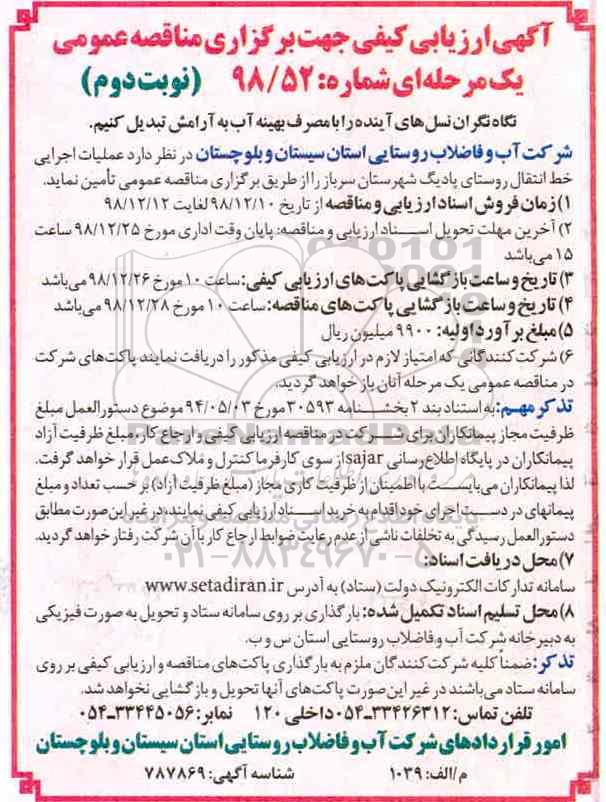 آگهی ارزیابی کیفی جهت برگزاری مناقصه عمومی
یک مرحله‌ای شماره: ۹۸/۵۲ (نوبت دوم)
نگاه نگران نسل‌های آینده را با مصرف بهینه آب به آرامش تبدیل کنیم.
شرکت آب و فاضلاب روستایی استان سیستان و بلوچستان در نظر دارد عملیات اجرایی
خط انتقال روستای پادیگ شهرستان سرباز را از طریق برگزاری مناقصه عمومی تأمین نماید.
۱) زمان فروش اسناد ارزیابی و مناقصه از تاریخ ۹۸/۱۲/۱۰ لغایت ۹۸/۱۲/۱۲
۲) آخرین مهلت تحویل اسناد ارزیابی و مناقصه: پایان وقت اداری مورخ ۹۸/۱۲/۲۵ ساعت
۱۵ می‌باشد
۳) تاریخ و ساعت بازگشایی پاکت‌های ارزیابی کیفی: ساعت ۱۰ مورخ ۹۸/۱۲/۲۶ می‌باشد
۴) تاریخ و ساعت بازگشایی پاکت‌های مناقصه: ساعت ۱۰ مورخ ۹۸/۱۲/۲۸ می‌باشد
۵) مبلغ برآورد اولیه: ۹۹۰۰ میلیون ریال
۶) شرکت‌کنندگانی که امتیاز لازم در ارزیابی کیفی مذکور را دریافت نمایند پاکت‌های شرکت
در مناقصه عمومی یک مرحله آنان باز خواهد گردید.
تذکر مهم: به استناد بند ۲ بخشنامه ۳۰۵۹۳ مورخ ۹۴/۰۵/۰۳ موضوع دستورالعمل مبلغ
ظرفیت مجاز پیمانکاران برای شرکت در مناقصه ارزیابی کیفی و ارجاع کار، مبلغ ظرفیت آزاد
پیمانکاران در پایگاه اطلاع‌رسانی sajar از سوی کارفرما کنترل و ملاک عمل قرار خواهد گرفت.
لذا پیمانکاران می‌بایست با اطمینان از ظرفیت کاری مجاز (مبلغ ظرفیت آزاد) بر حسب تعداد و مبلغ
پیمانهای در دست اجرای خود اقدام به خرید اسناد ارزیابی کیفی نمایند، در غیر این صورت مطابق
دستورالعمل رسیدگی به تخلفات ناشی از عدم رعایت ضوابط ارجاع کار با آن شرکت رفتار خواهد گردید.
۷) محل دریافت اسناد:
سامانه تدارکات الکترونیک دولت (ستاد) به آدرس www.setadiran.ir
۸) محل تسلیم اسناد تکمیل شده: بارگذاری بر روی سامانه ستاد و تحویل به صورت فیزیکی
به دبیرخانه شرکت آب و فاضلاب روستایی استان س و ب.
تذکر: ضمناً کلیه شرکت‌کنندگان ملزم به بارگذاری پاکت‌های مناقصه و ارزیابی کیفی بر روی
سامانه ستاد می‌باشند در غیر این صورت پاکت‌های آنها تحویل و بازگشایی نخواهد شد.
تلفن تماس: ۳۳۴۲۶۳۱۲-۰۵۴ داخلی ۱۲۰ نمابر: ۳۳۴۴۵۰۵۶-۰۵۴
امور قراردادهای شرکت آب و فاضلاب روستایی استان سیستان و بلوچستان
م/الف: ۱۰۳۹ شناسه آگهی: ۷۸۷۸۶۹